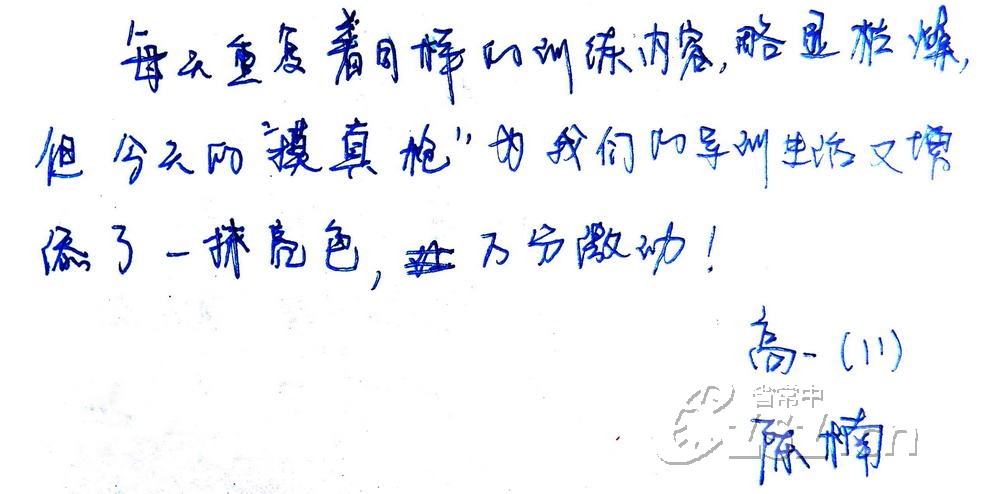 每天重复着同样的训练内容,略显枯燥,
但今天的“摸真枪”为我们的军训生活又增
添了一抹亮色, 万分激动!
高一(11)
省常中
陈楠